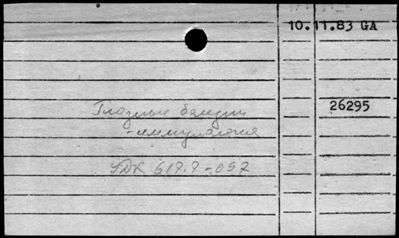 10.11.83 GA
26295
Глазные болезни
- иммунология
УДК 617.7-097